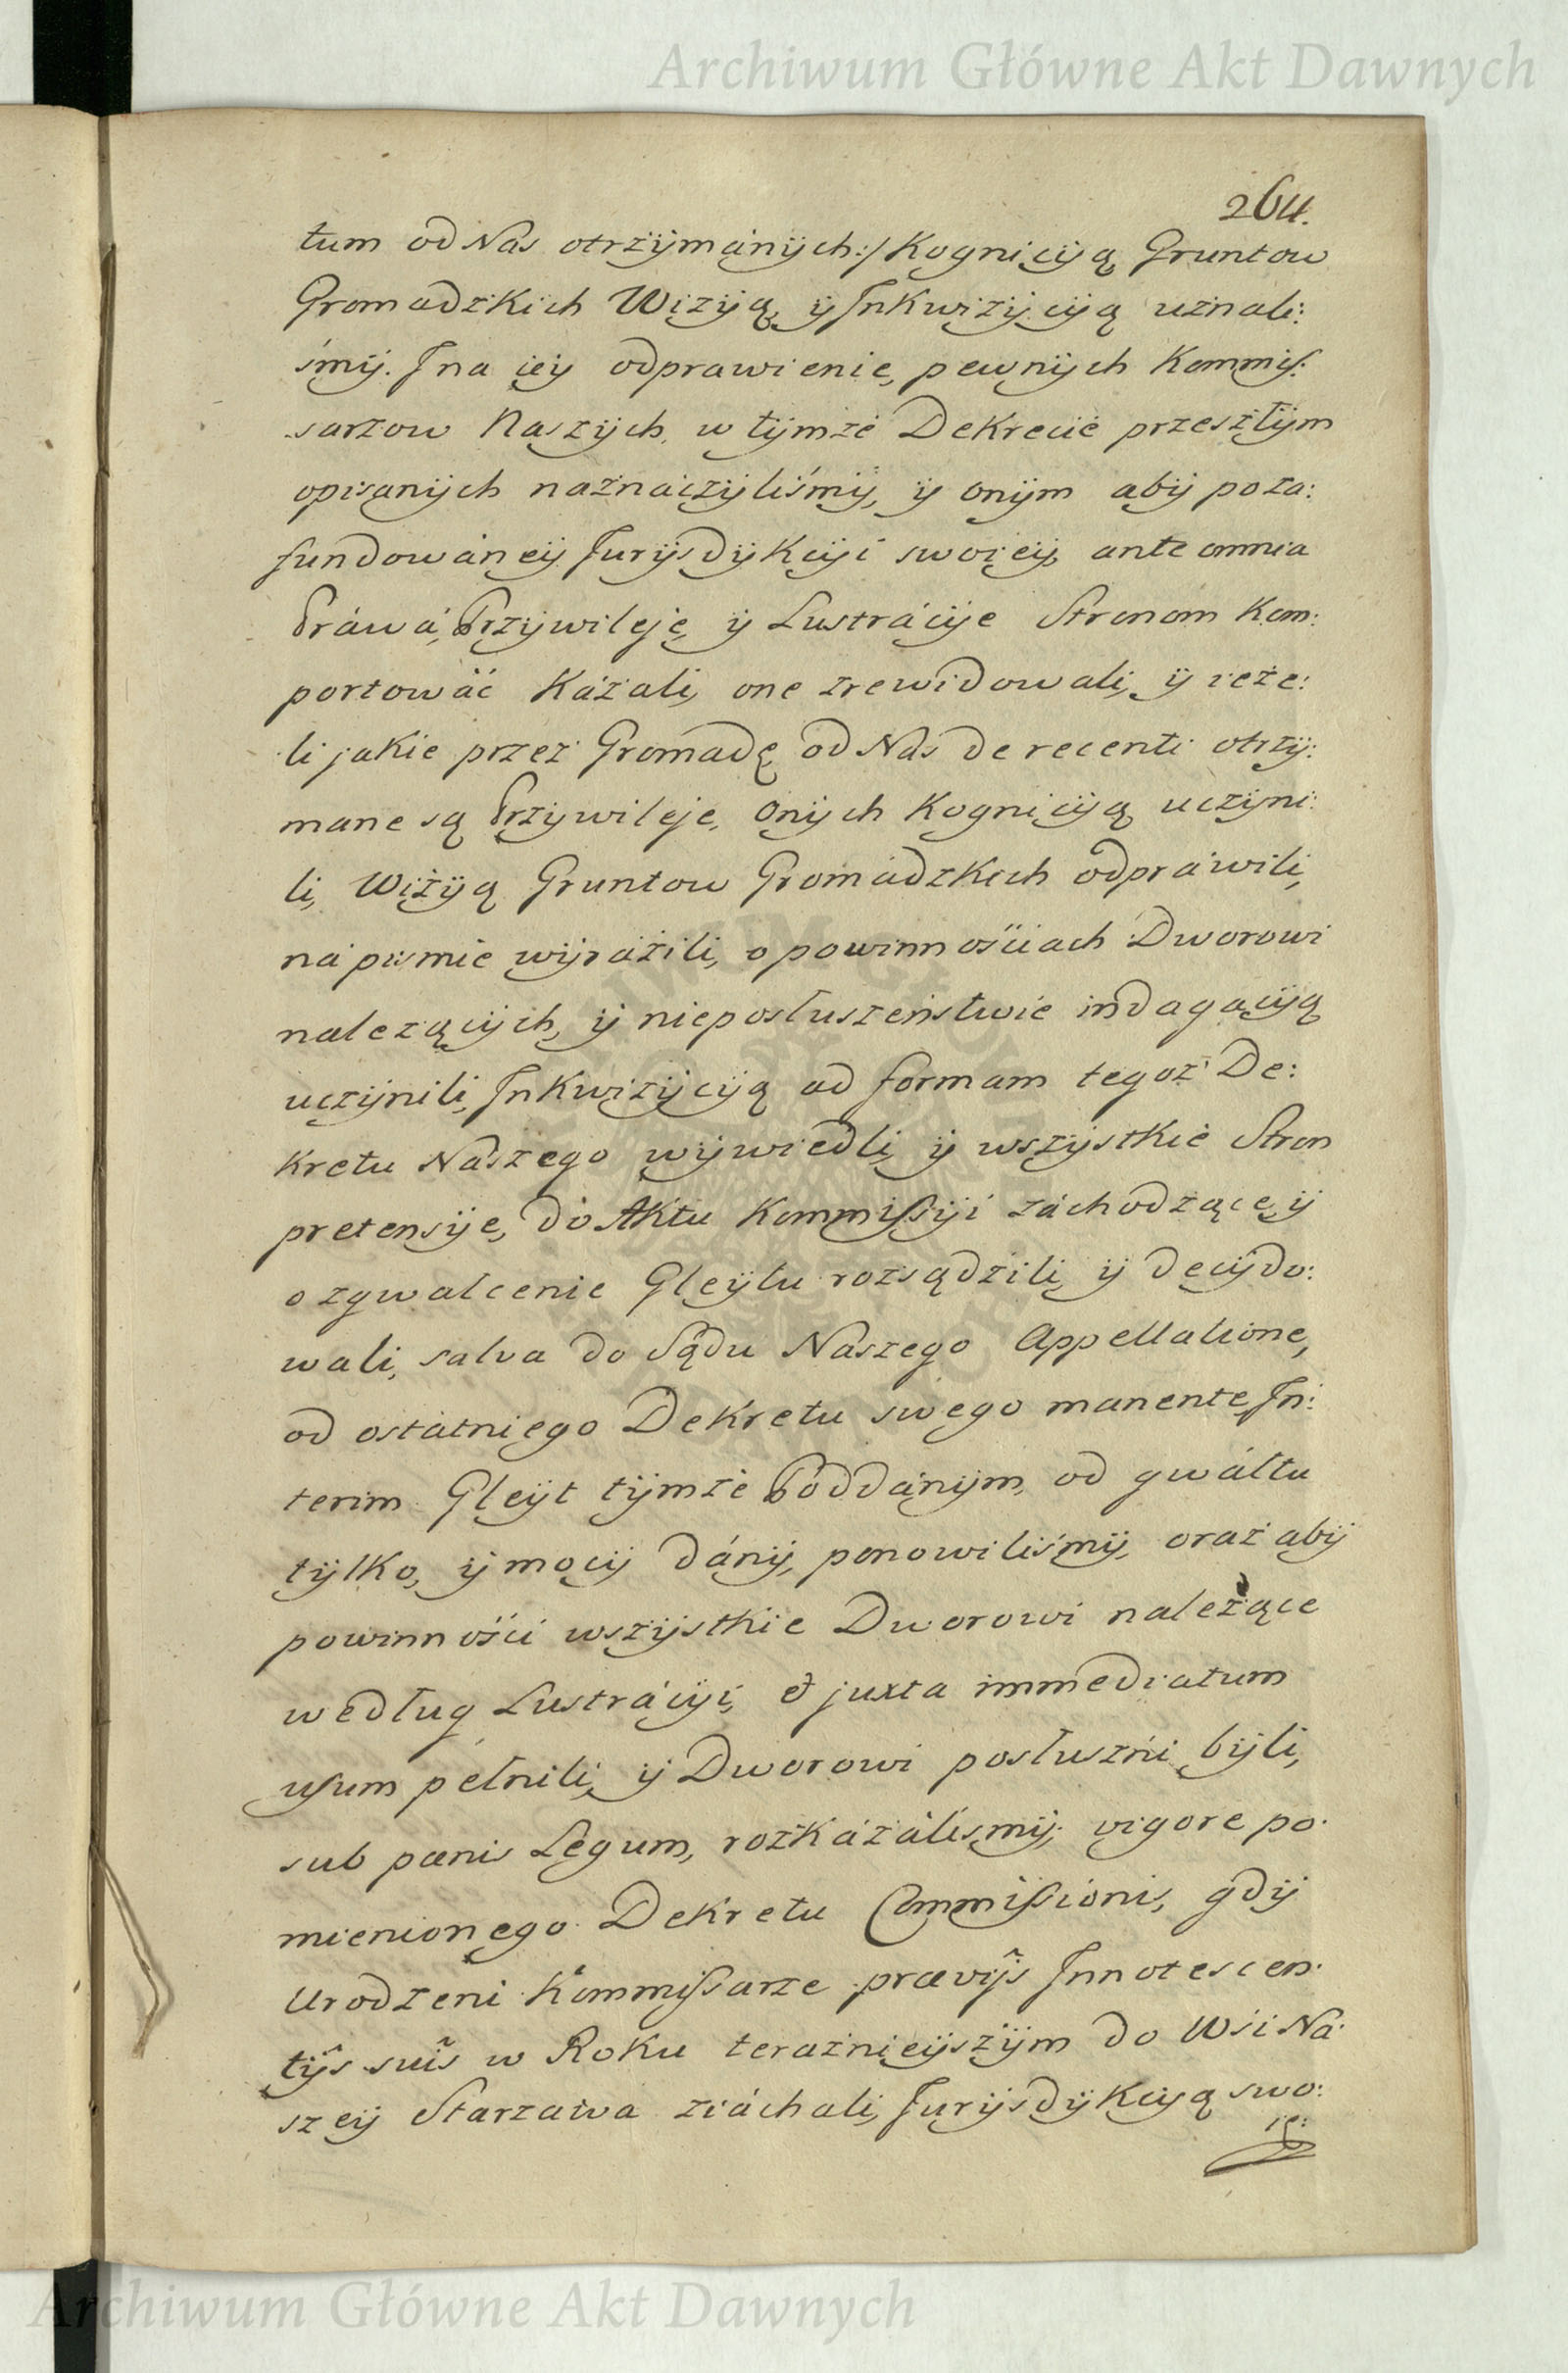 Archiwum Główne Akt Dawnych
264.
tum od Nas otrzÿmánÿch:/ Kognicÿą Gruntow
Gromadzkich Wizÿą, ÿ Inkwizÿcÿą uznali:
śmÿ. I na ieÿ odprawienie, pewnÿch Kommis:
sarzow Naszÿch, w tÿmże Dekrecie przeszłÿm
opisanÿch naznaczÿliśmÿ, ÿ onÿm abÿ poza:
fundowáneÿ Jurÿsdÿkcÿi swoieÿ, ante omnia
Práwá, Przÿwileje, ÿ Lustrácÿe Stronom Kom:
portowáć kázali, one zrewidowali, ÿ ieże:
li jakie przez Gromadę od Nas de recenti otrzÿ:
mane są Przÿwileje, onÿch Kognicÿą uczÿni:
li, Wizÿą Gruntow Gromádzkich odpráwili,
ná pismie wÿráźili, o powinnościach Dworowi
należącÿch, ÿ nieposłuszeństwie indagacÿą
uczÿnili, Inkwizÿcÿą ad formam tegoż De:
kretu Naszego wÿwiedli, ÿ wszÿstkie Stron
pretensÿe, do Aktu Kommissÿi záchodzące, ÿ
o zgwałcenie Gleÿtu rozsądzili, ÿ decÿdo:
wali, salva do Sądu Naszego Appellatione,
od ostátniego Dekretu swego manente In:
terim Gleÿt tÿmże Poddánÿm, od gwáłtu
tÿlko, ÿ mocÿ dánÿ, ponowiliśmÿ, oraz abÿ
powinności wszÿstkie Dworowi należące
według Lustrácÿi, et juxta immediatum
usum pełnili, ÿ Dworowi posłuszni bÿli,
sub pœnis Legum, rozkázáliśmÿ. vigore po:
mienionego Dekretu Commissionis, gdÿ
Urodzeni Kommissarze prævÿs Innotescen:
tÿs suis w Roku terazniejszÿm do Wsi Na:
szeÿ Starzawa ziáchali, Jurÿsdÿkcÿą swo:
ię:
Archiwum Główne Akt Dawnych